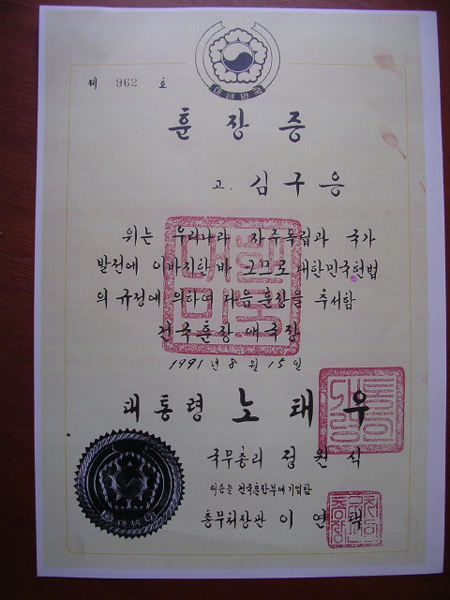 대한민국
제 962 호
훈장증
고. 김구응
위는 우리나라 자주독립과 국가
발전에 이바지한바 크므로 대한민국헌법
의 규정에 의하여 다음 훈장을 추서함
건국훈장 애국장
1991년 8월 15일
대통령 노태우
국무총리 정원식
이증을 건국훈장부에 기입함
총무처장관 이연택